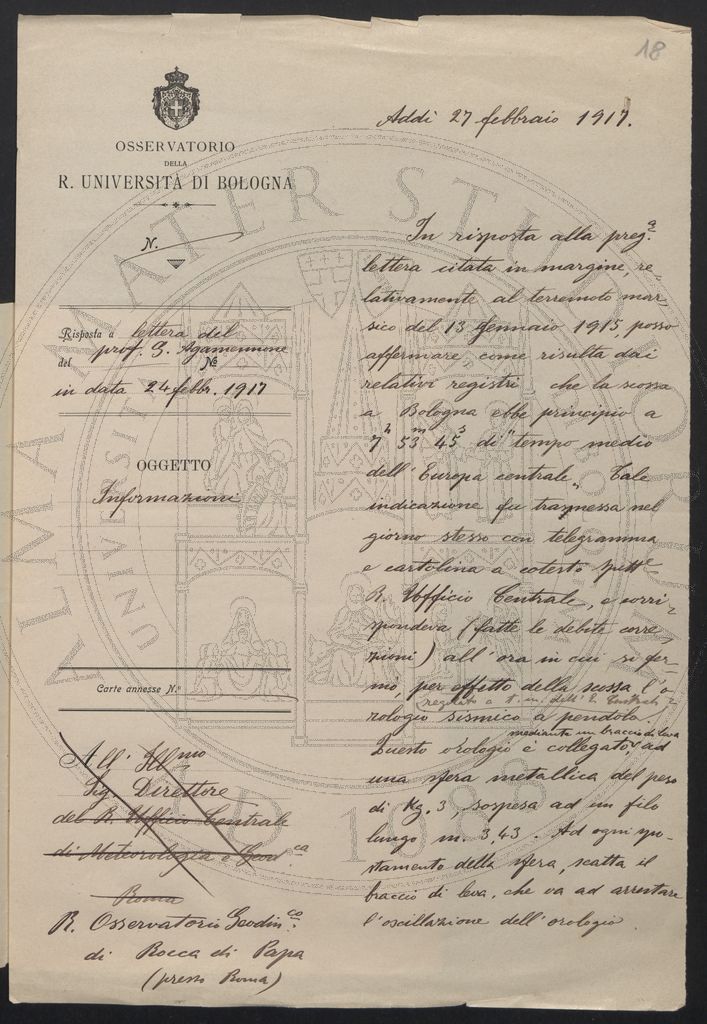 18
Addì 27 febbraio 1917.
OSSERVATORIO
DELLA
R. UNIVERSITÀ DI BOLOGNA
N.
Risposta a lettera del
prof. G. Agamennone
del N.º
in data 24 febbr. 1917
OGGETTO
Informazioni
Carte annesse N.º
All' Illmo
Sig Direttore
del R. Ufficio Centrale
di Meteorologia e Geod.ca
Roma
R. Osservatorio Geodin.co
di Rocca di Papa
(presso Roma)
In risposta alla preg.a
lettera citata in margine, re-
lativamente al terremoto mar-
sico del 13 Gennaio 1915, posso
affermare, come risulta dai
relativi registri che la scossa
a Bologna ebbe principio a
7h 53m 45s di "tempo medio
dell'Europa centrale". Tale
indicazione fu trasmessa nel
giorno stesso con telegramma
e cartolina a cotesto spett.e
R. Ufficio Centrale, e corri-
spondeva (fatte le debite corre-
zioni) all'ora in cui si fer-
mò, per effetto della scossa l'o-
regolato a t. m. dell'E. Centrale
rologio sismico a pendolo.
mediante un braccio di leva
Questo orologio è collegato, ad
una sfera metallica del peso
di Kg. 3, sospesa ad un filo
lungo m. 3,43. Ad ogni spo-
stamento della sfera, scatta il
braccio di leva, che va ad arrestare
l'oscillazione dell'orologio.
ALMA MATER STUDIORUM
A.D. 1088